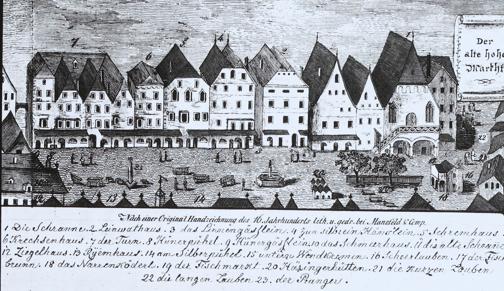 Der
alte hohe
Markth
Nach einer Original Handzeichnung des 16. Jahrhunderts lith. u. gedr. bei Mansfeld & Comp.
1 Die Schranne. 2 Leinwathaus. 3 das Linnengässlein. 4 zum silbrein 5 Schremhaus.
6 Krechsenhaus. 7 der Turn. 8 Hünerpühel. 9 Hünergässlein 10 das Schmerhaus. 11 die alte Schranne
12 Ziegelhaus. 13 Pyemhaus. 14 am Silberpühel. 15 unter Wendkremen. 16 Scherlauben. 17 der Fisc
brunn. 18 das Narrenköderl. 19 der Fischmarkt. 20 Häsingerhütten. 21 die kurzen Lauben.
22 die langen Lauben. 23. der Pranger.